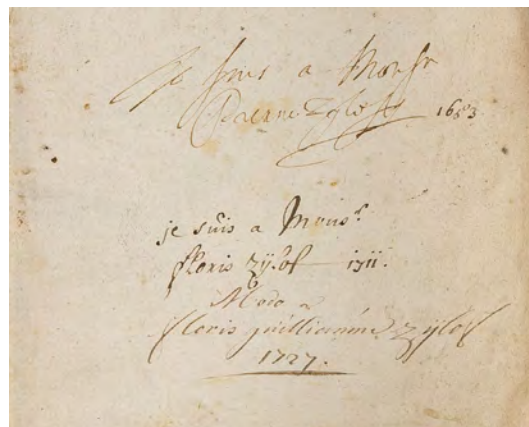 Je suis a Monsr
Zylof 1683
je suis a Monsr.
floris zylof 1711.
Modo a
floris guilliaume zylof
1727.